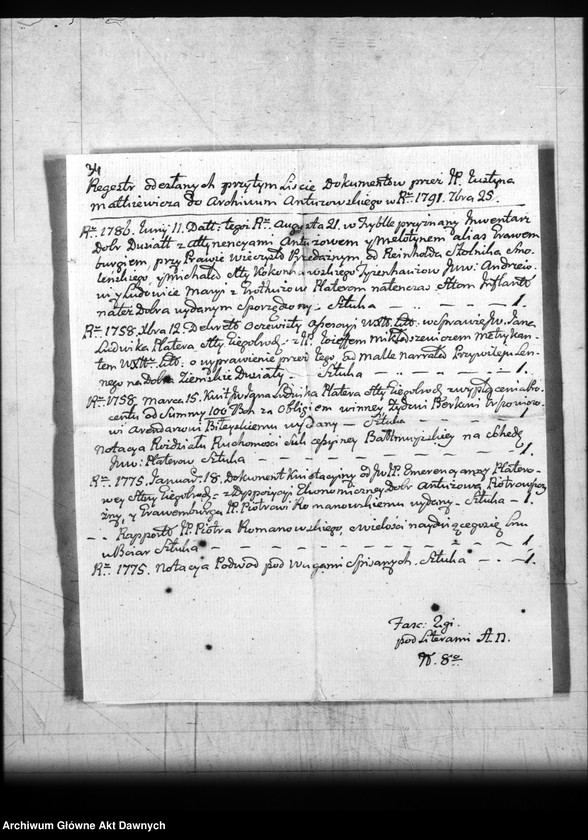 Regestr odesłanych przy tym Liście Dokumentow przez JP. Justyna
Matkiewicza do Archivum Antuzowskiego w Rꝫ 1791. 7bra 25.
Rꝫ 1786. Junij 11. Datt: tegoż Rꝫ Augusta 21. w Grodzie przyznany Inwentarz
Dobr Dusiatt z Attynencyami Antuzowem y Mełotynem alias Brawem
burgiem, przy Prawie wieczysto Przedażnym, od Reinholda Stolnika Smo-
lenskiego, y Michała Stty Tyzenhauzow Jww: Andrzeio-
wi y Ludowice Maryi z Grothuzow Platerom natenczas Sttom Inflantt
nateż Dobra wydanym Sporządzony. Sztuka — — — — 1.
Rꝫ 1758. Xbra 12. Dekrett Oczewisty Assessoryi WXtt. Litt. w sprawie Jw. Jana
Ludwika Platera Stty z JP. Jozeffem Mikłaszewiczem Metrykan-
tem WXtt. Litt. o wyprawienie przez tego, ad male narrata Przywileju Len-
nego na Dobra Ziemskie Dusiaty. — Sztuka — — — 1.
Rꝫ 1758. Marca 15. Kwitt Jw. Jana Ludwika Platera Stty z wypłacenia Pro-
centu od Summy 100 Bitt. za Obligiem winney Żydowi Berkowi
wi Arendarowi wydany — Sztuka — — — 1
Notacya Rozdziału Ruchomości Sukcessyiney na Schedę
Jww: Platerow Sztuka — — — — — 1.
Rꝫ 1775. Januar: 18. Dokument Kwietacyiny od Jw JP. Emerencyanny Platero-
wey Stny z Dyspozycyi Ekonomiczney Dobr Antuzowa,
y Brawenburga JP. Piotrowi Romanowskiemu wydany — Sztuka — 1
— — Rapportt JP. Piotra Romanowskiego, o wielości naydującegosię Lnu
u Boiar Sztuka — — — — — 1.
Rꝫ 1775. Notacya Podwod pod Wugami Spisanych. Sztuka — — 1.
Fasc: 2gi.
pod Literami A. D.
N. 8vo
Archiwum Główne Akt Dawnych